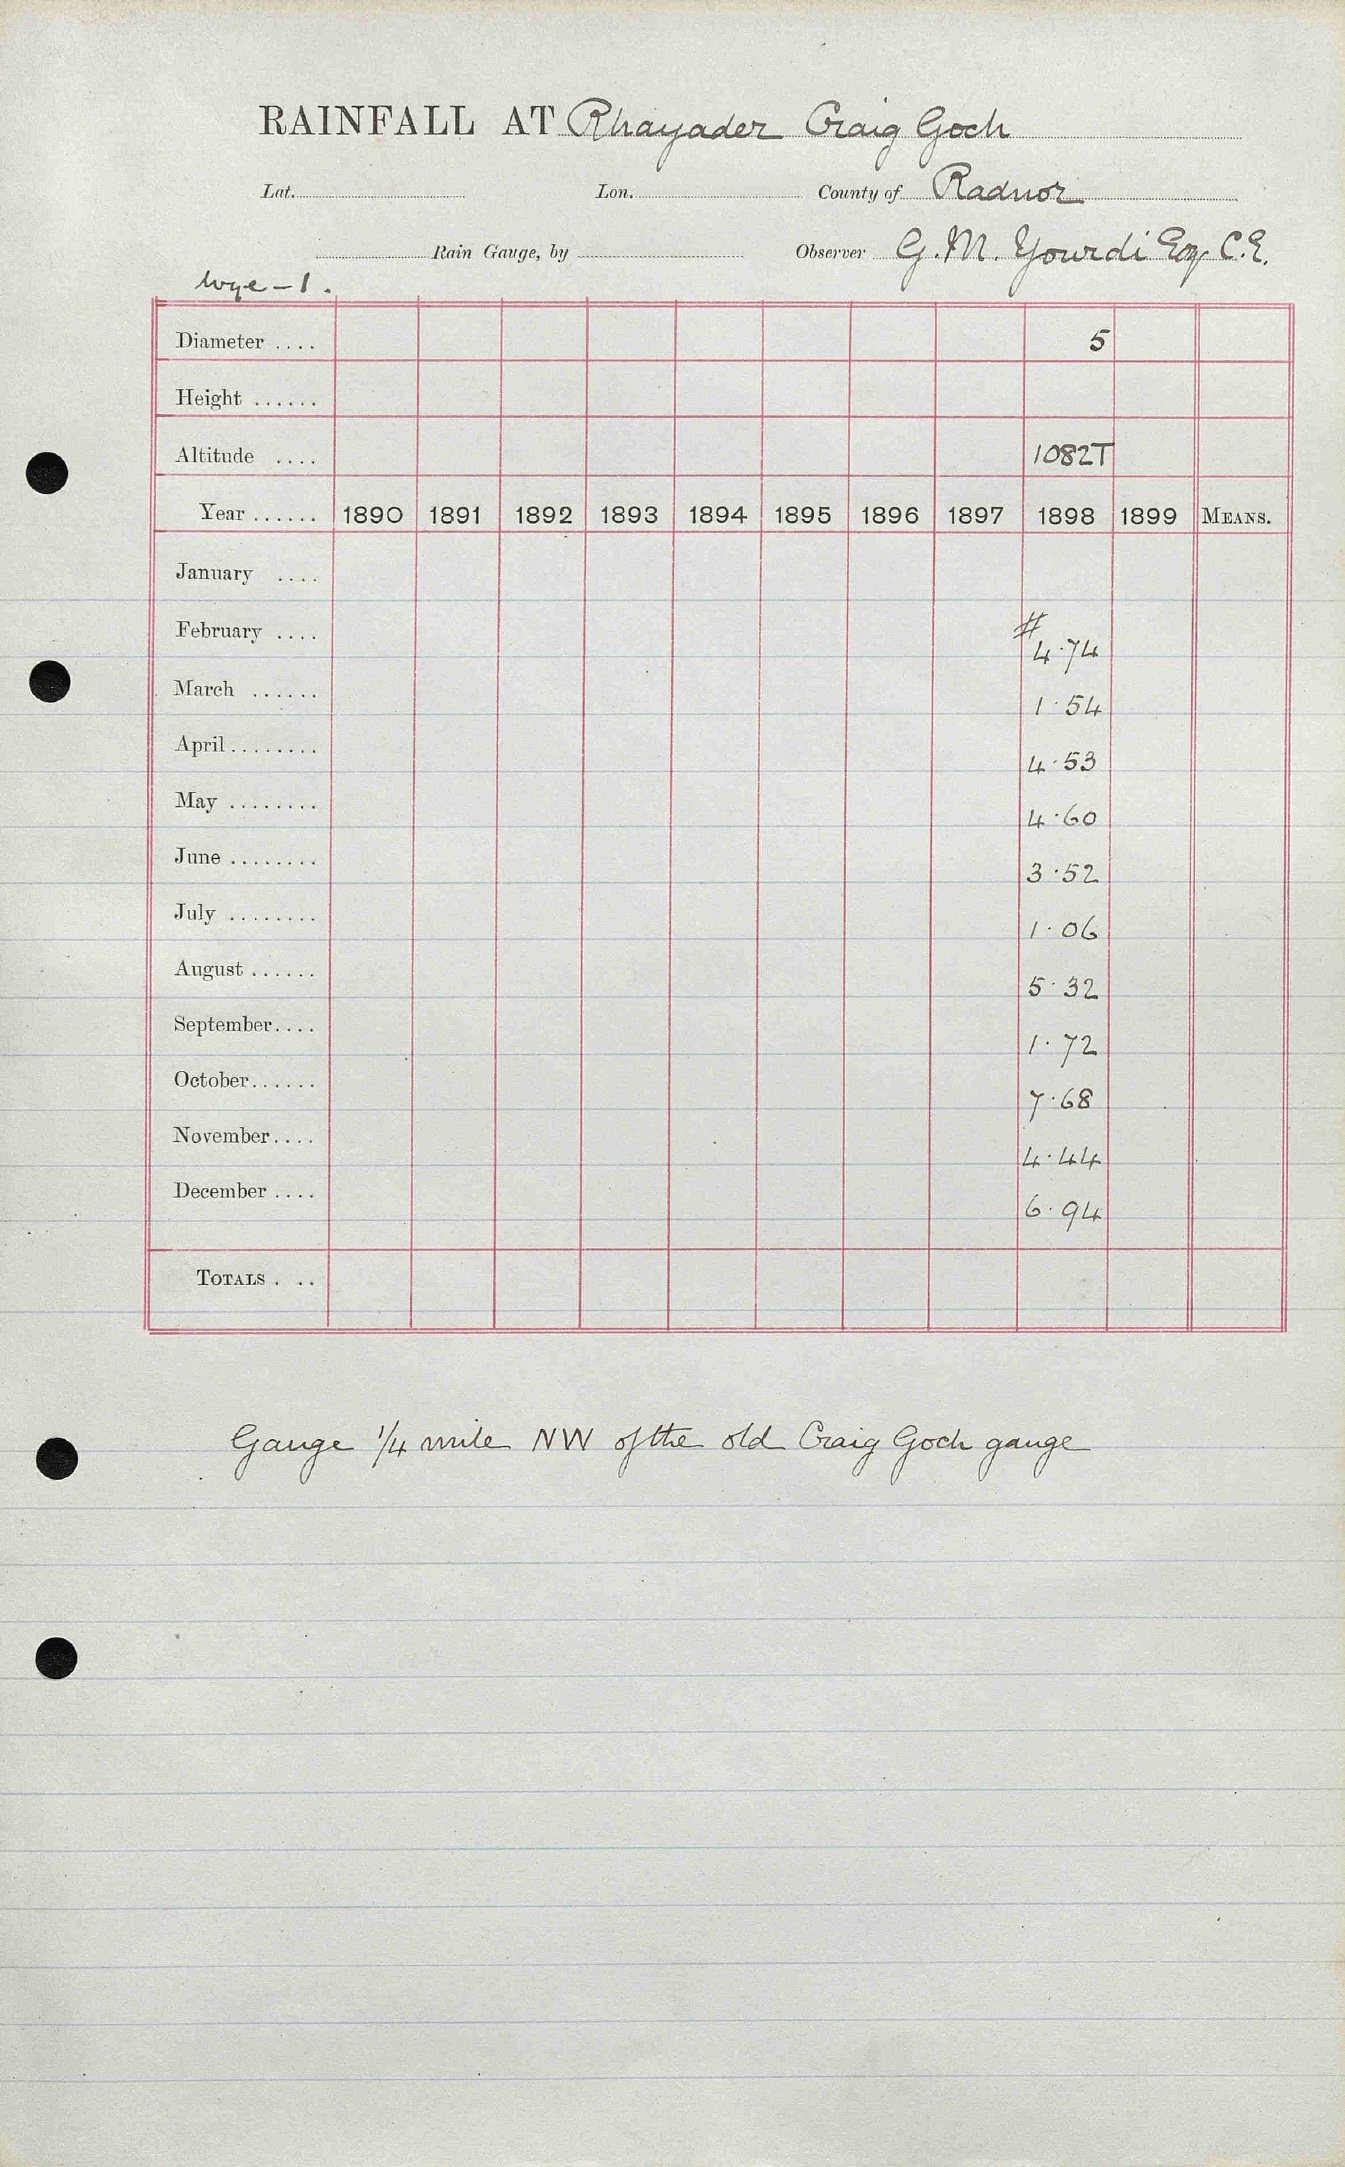 RAINFALL AT Rhayader Craig Goch
Lat. Lon. County of Radnor
Rain Gauge, by Observer G. M. Yourdi Esq. C.E.
Wye - 1.
Diameter .... 5
Height ......
Altitude .... 1082T
Year ...... 1890 1891 1892 1893 1894 1895 1896 1897 1898 1899 MEANS.
January ....
February .... # 4.74
March ...... 1.54
April ........ 4.53
May ........ 4.60
June ........ 3.52
July ........ 1.06
August ...... 5.32
September.... 1.72
October...... 7.68
November.... 4.44
December .... 6.94
TOTALS . ..
Gauge 1/4 mile NW of the old Craig Goch gauge